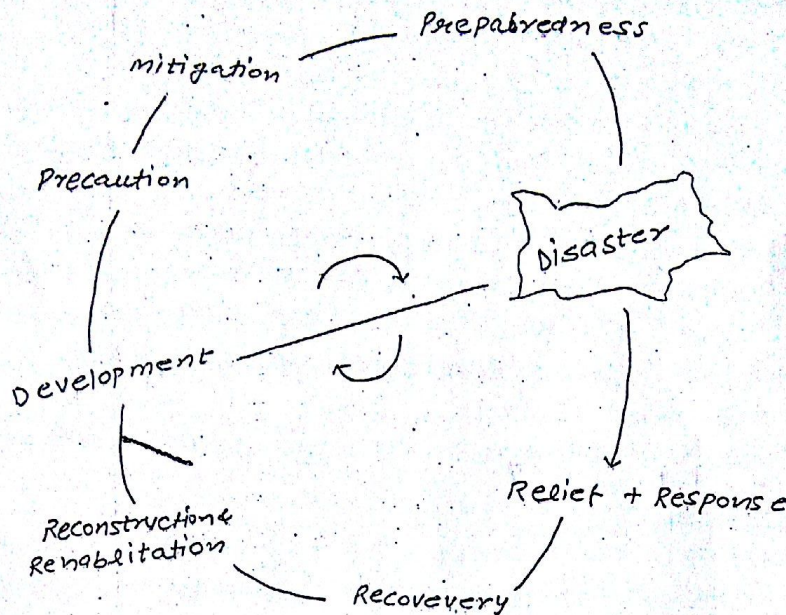 Prepabredness
mitigation
Precaution
Disaster
Development
Relief + Response
Reconstruction &
Renablitation
Recovevery